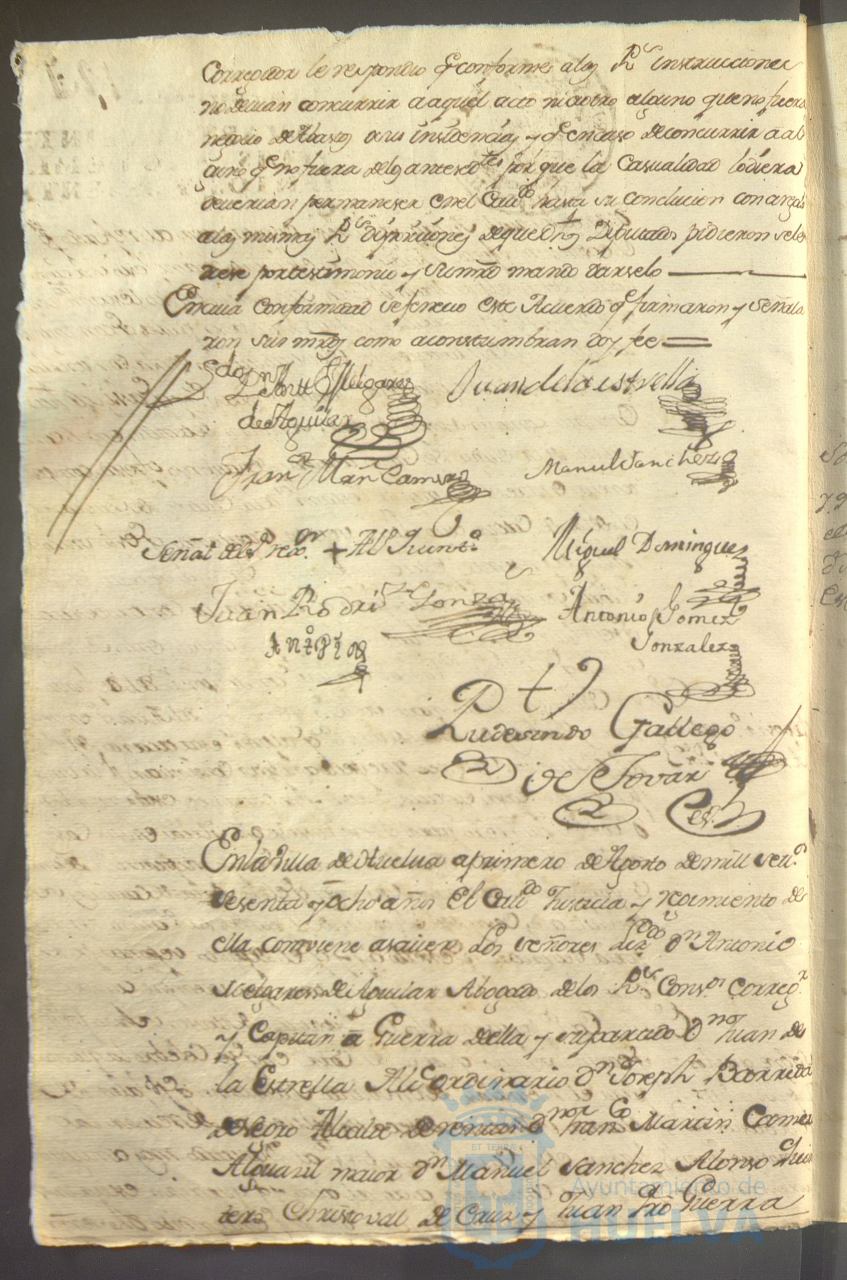 Corregidor le respondio q conforme a las R.s instrucciones
no devian concurrir a aquel acto ni a otro alguno que no fuera
negocio de Abastos o sus insidencias y q en caso de concurrir a al
guno q no fuera de los antesed.tes por que la Casualidad lo diera
deverian permaneser en el Cav.do hasta su conclucion con arreglo
a las mismas R.s disposiciones de que d.hos Diputados pidieron seles
diese por testimonio y su mrd mando darselo
En cuia Conformidad se fenecio este Acuerdo q firmaron y señala
ron sus mrds como acostumbran doy fee
Melgarejo
de Aguilar
Juan de la estrella
Fran.co Mar.n Camero
Manuel Sanchez
Señal del S.r reg.or + Al
Miguel Dominguez
Juan Rodri.z Gonza
Antonio Gomez
Gonzalez
Rudesindo Gallego
de Tovar
es.no
En la Villa de Huelva a primero de Agosto de mill set.s
sesenta y ocho años El Cav.do Justicia y rexim.iento de
ella combiene a saver Los señores Liz.do d.n Antonio
Melgarejo de Aguilar Abogado de los R.s Cons.os Correg.r
y Capitan a Guerra della y su partido d.n Juan de
la Estrella Alc. ordinario d.n Joseph Barrida
Alcalde d.n Fran.co Martin Camero
Alguazil maior d.n Manuel Sanchez Alonso
Christoval de Cruz y Juan Guerra
Ayuntamiento de
HUELVA